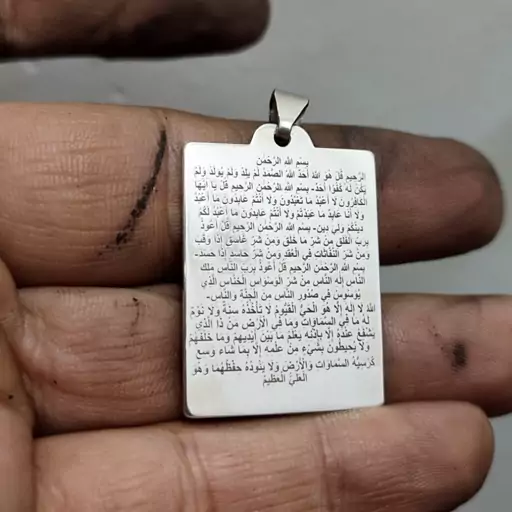 بسم الله الرَّحْمَن
الرَّحِيم قُلْ هُوَ اللَّهُ أَحَدٌ اللَّهُ الصَّمَدُ لَمْ يَلِدْ وَلَمْ يُولَدْ وَلَمْ
يَكُنْ لَهُ كُفُوًا أَحَدٌ- بسم الله الرَّحْمَن الرَّحِيم قُلْ يَا أَيُّهَا
الْكَافِرُونَ لَا أَعْبُدُ مَا تَعْبُدُونَ وَلَا أَنْتُمْ عَابِدُونَ مَا أَعْبُدُ
وَلَا أَنَا عَابِدٌ مَا عَبَدْتُمْ وَلَا أَنْتُمْ عَابِدُونَ مَا أَعْبُدُ لَكُمْ
دِينُكُمْ وَلِيَ دِينِ- بسم الله الرَّحْمَن الرَّحِيم قُلْ أَعُوذُ
بِرَبِّ الْفَلَقِ مِنْ شَرِّ مَا خَلَقَ وَمِنْ شَرِّ غَاسِقٍ إِذَا وَقَبَ
وَمِنْ شَرِّ النَّفَّاثَاتِ فِي الْعُقَدِ وَمِنْ شَرِّ حَاسِدٍ إِذَا حَسَدَ-
بسم الله الرَّحْمَن الرَّحِيم قُلْ أَعُوذُ بِرَبِّ النَّاسِ مَلِكِ
النَّاسِ إِلَهِ النَّاسِ مِنْ شَرِّ الْوَسْوَاسِ الْخَنَّاسِ الَّذِي
يُوَسْوِسُ فِي صُدُورِ النَّاسِ مِنَ الْجِنَّةِ وَالنَّاسِ-
اللَّهُ لَا إِلَهَ إِلَّا هُوَ الْحَيُّ الْقَيُّومُ لَا تَأْخُذُهُ سِنَةٌ وَلَا نَوْمٌ
لَهُ مَا فِي السَّمَاوَاتِ وَمَا فِي الْأَرْضِ مَنْ ذَا الَّذِي
يَشْفَعُ عِنْدَهُ إِلَّا بِإِذْنِهِ يَعْلَمُ مَا بَيْنَ أَيْدِيهِمْ وَمَا خَلْفَهُمْ
وَلَا يُحِيطُونَ بِشَيْءٍ مِنْ عِلْمِهِ إِلَّا بِمَا شَاءَ وَسِعَ
كُرْسِيُّهُ السَّمَاوَاتِ وَالْأَرْضَ وَلَا يَئُودُهُ حِفْظُهُمَا وَهُوَ
الْعَلِيُّ الْعَظِيمُ